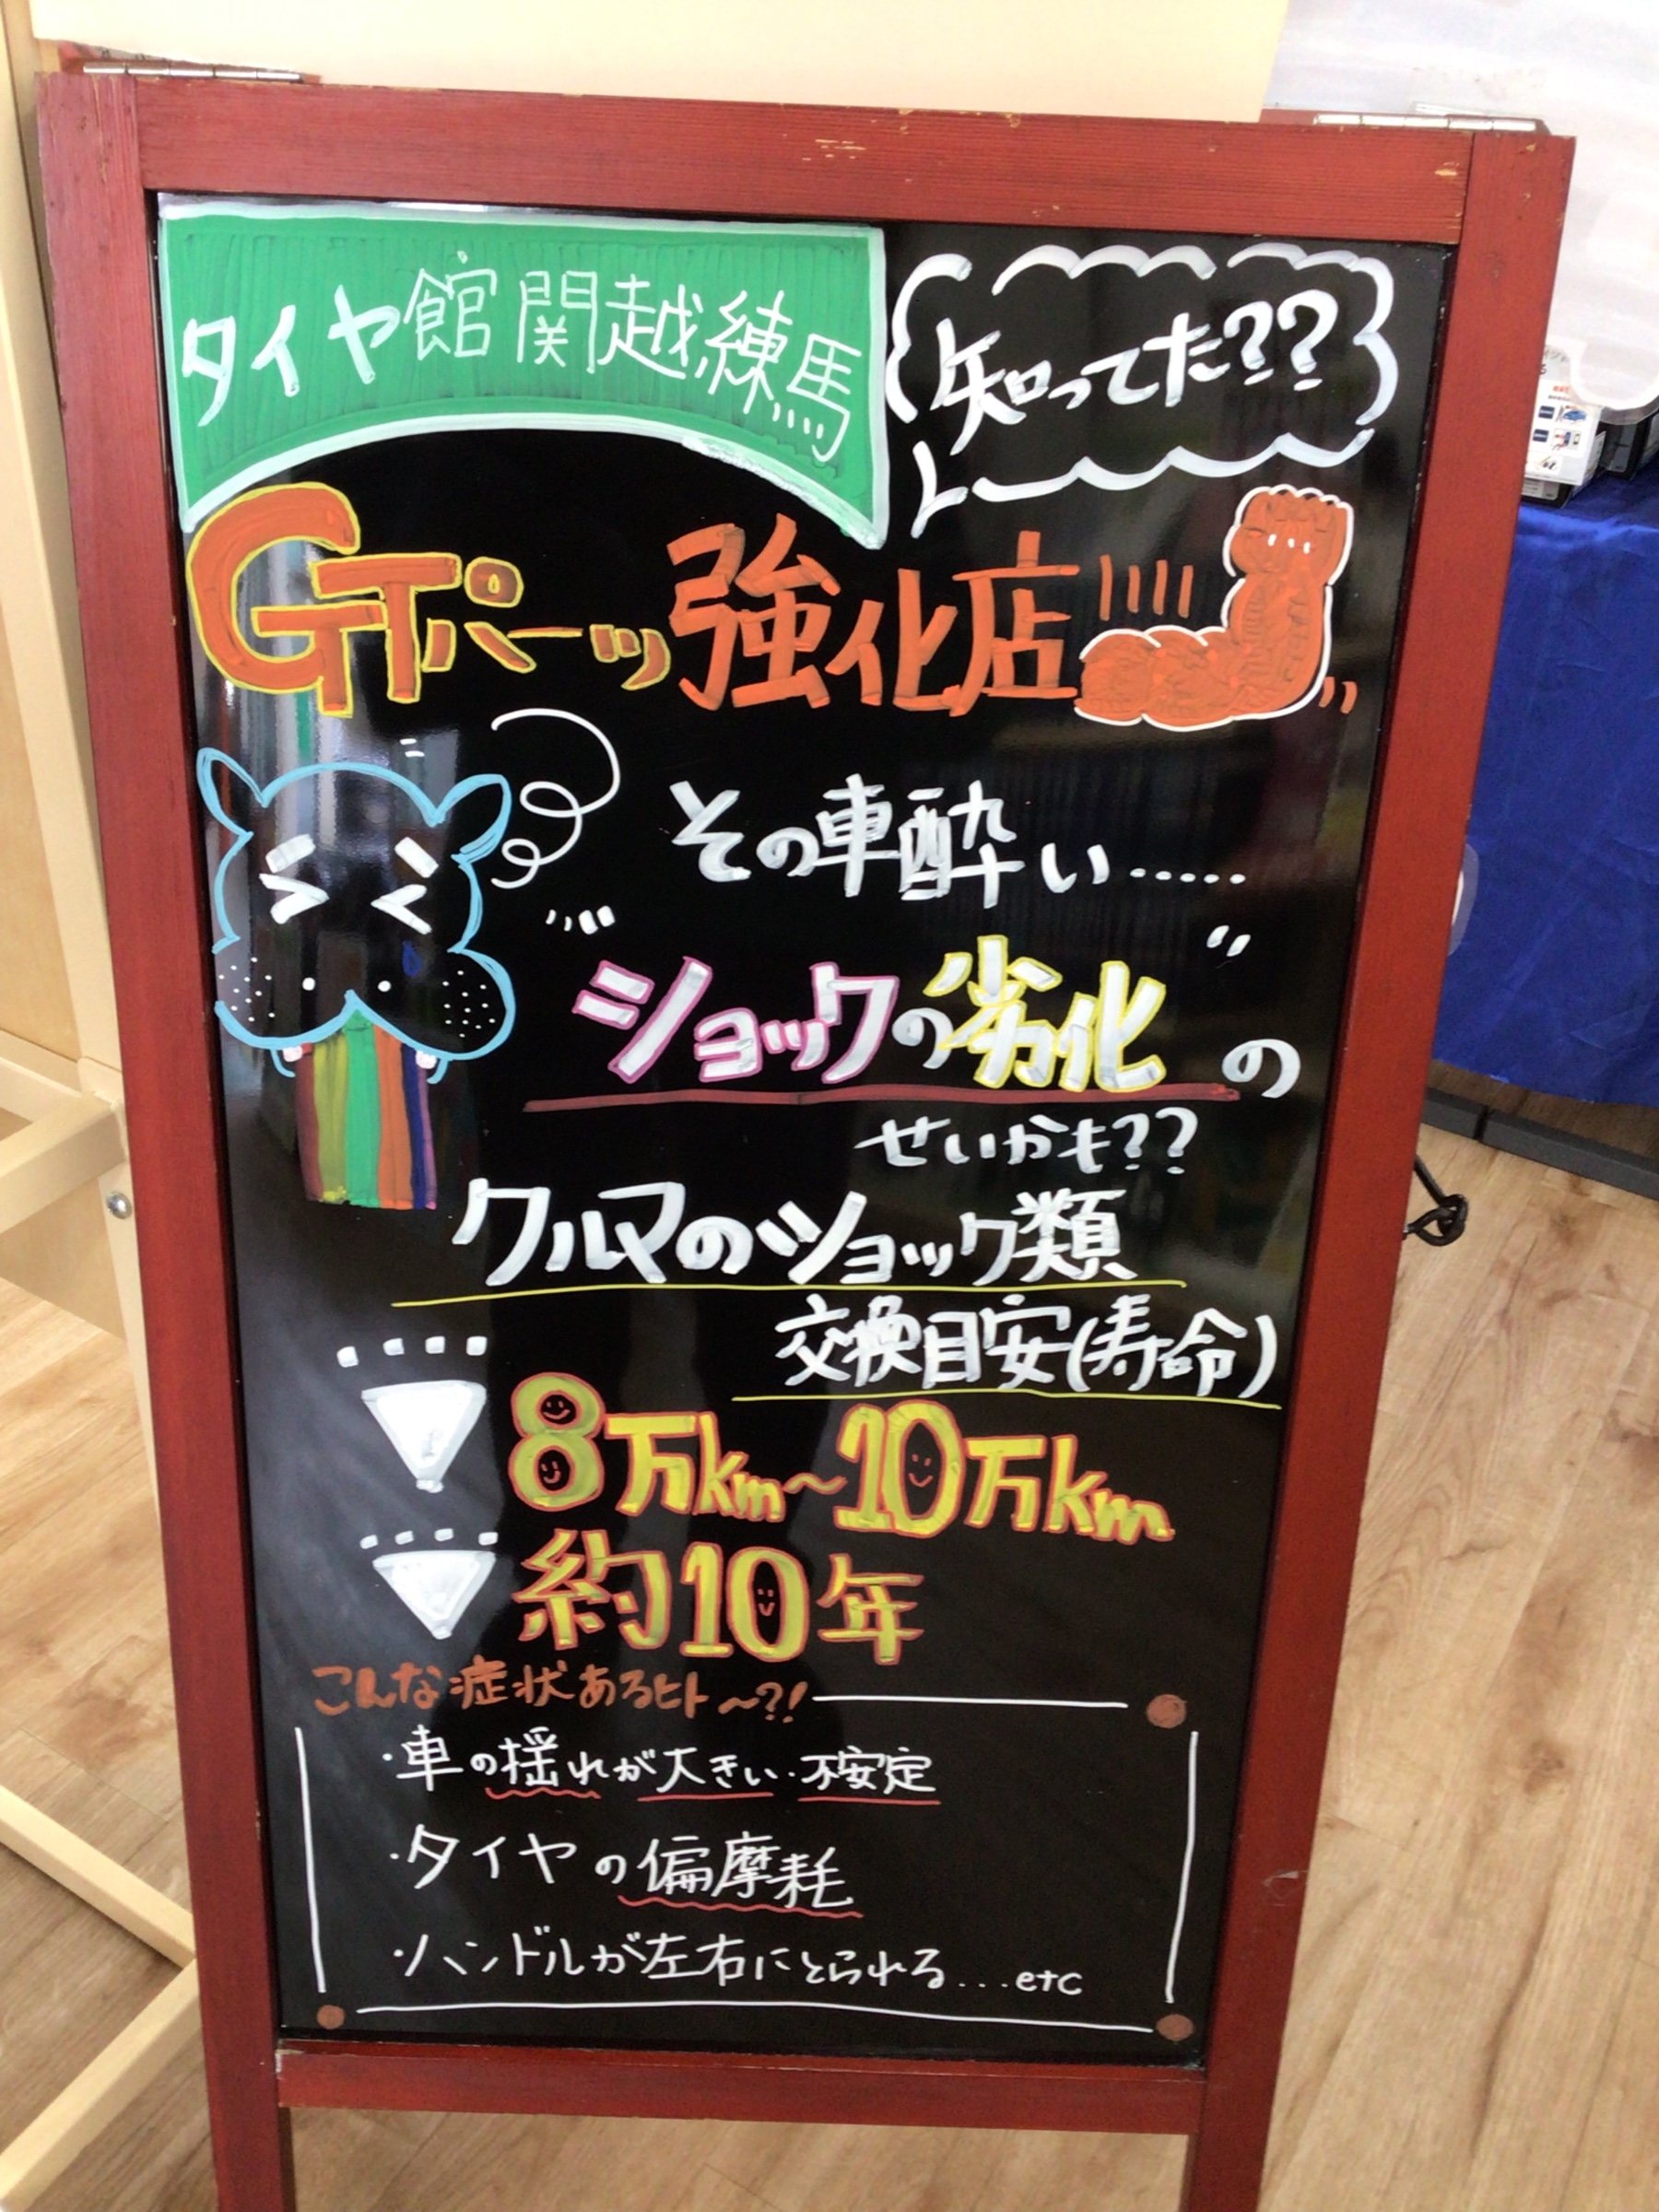 タイヤ館関越練馬
知ってた??
GTパーツ強化店
その車酔い.....
ショックの劣化の
せいかも??
クルマのショック類
交換目安(寿命)
8万km~10万km
約10年
こんな症状あるヒト~?!
・車の揺れが大きい・不安定
・タイヤの偏摩耗
・ハンドルが左右にとられる...etc